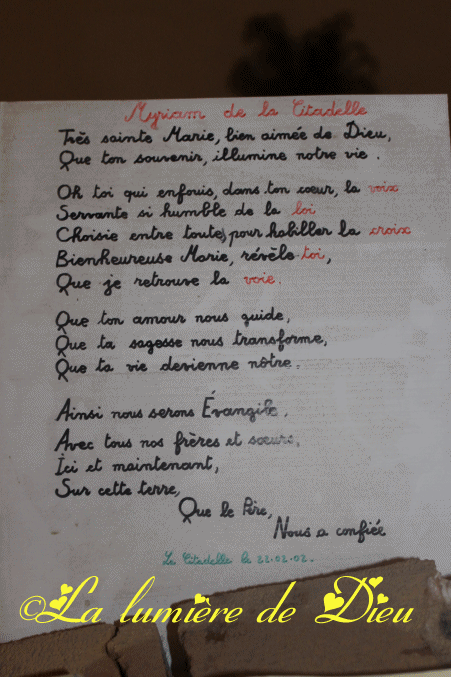 Myriam de la Citadelle
Très sainte Marie, bien aimée de Dieu,
Que ton souvenir, illumine notre vie.
Oh toi qui enfouis, dans ton cœur, la voix
Servante si humble de la loi
Choisie entre toutes, pour habiller la croix
Bienheureuse Marie, révèle-toi,
Que je retrouve la voie.
Que ton amour nous guide,
Que ta sagesse nous transforme,
Que ta vie devienne nôtre.
Ainsi nous serons Évangile.
Avec tous nos frères et sœurs,
Ici et maintenant,
Sur cette terre,
Que le Père,
Nous a confiée
La Citadelle le 22.02.02.
©La lumière de Dieu